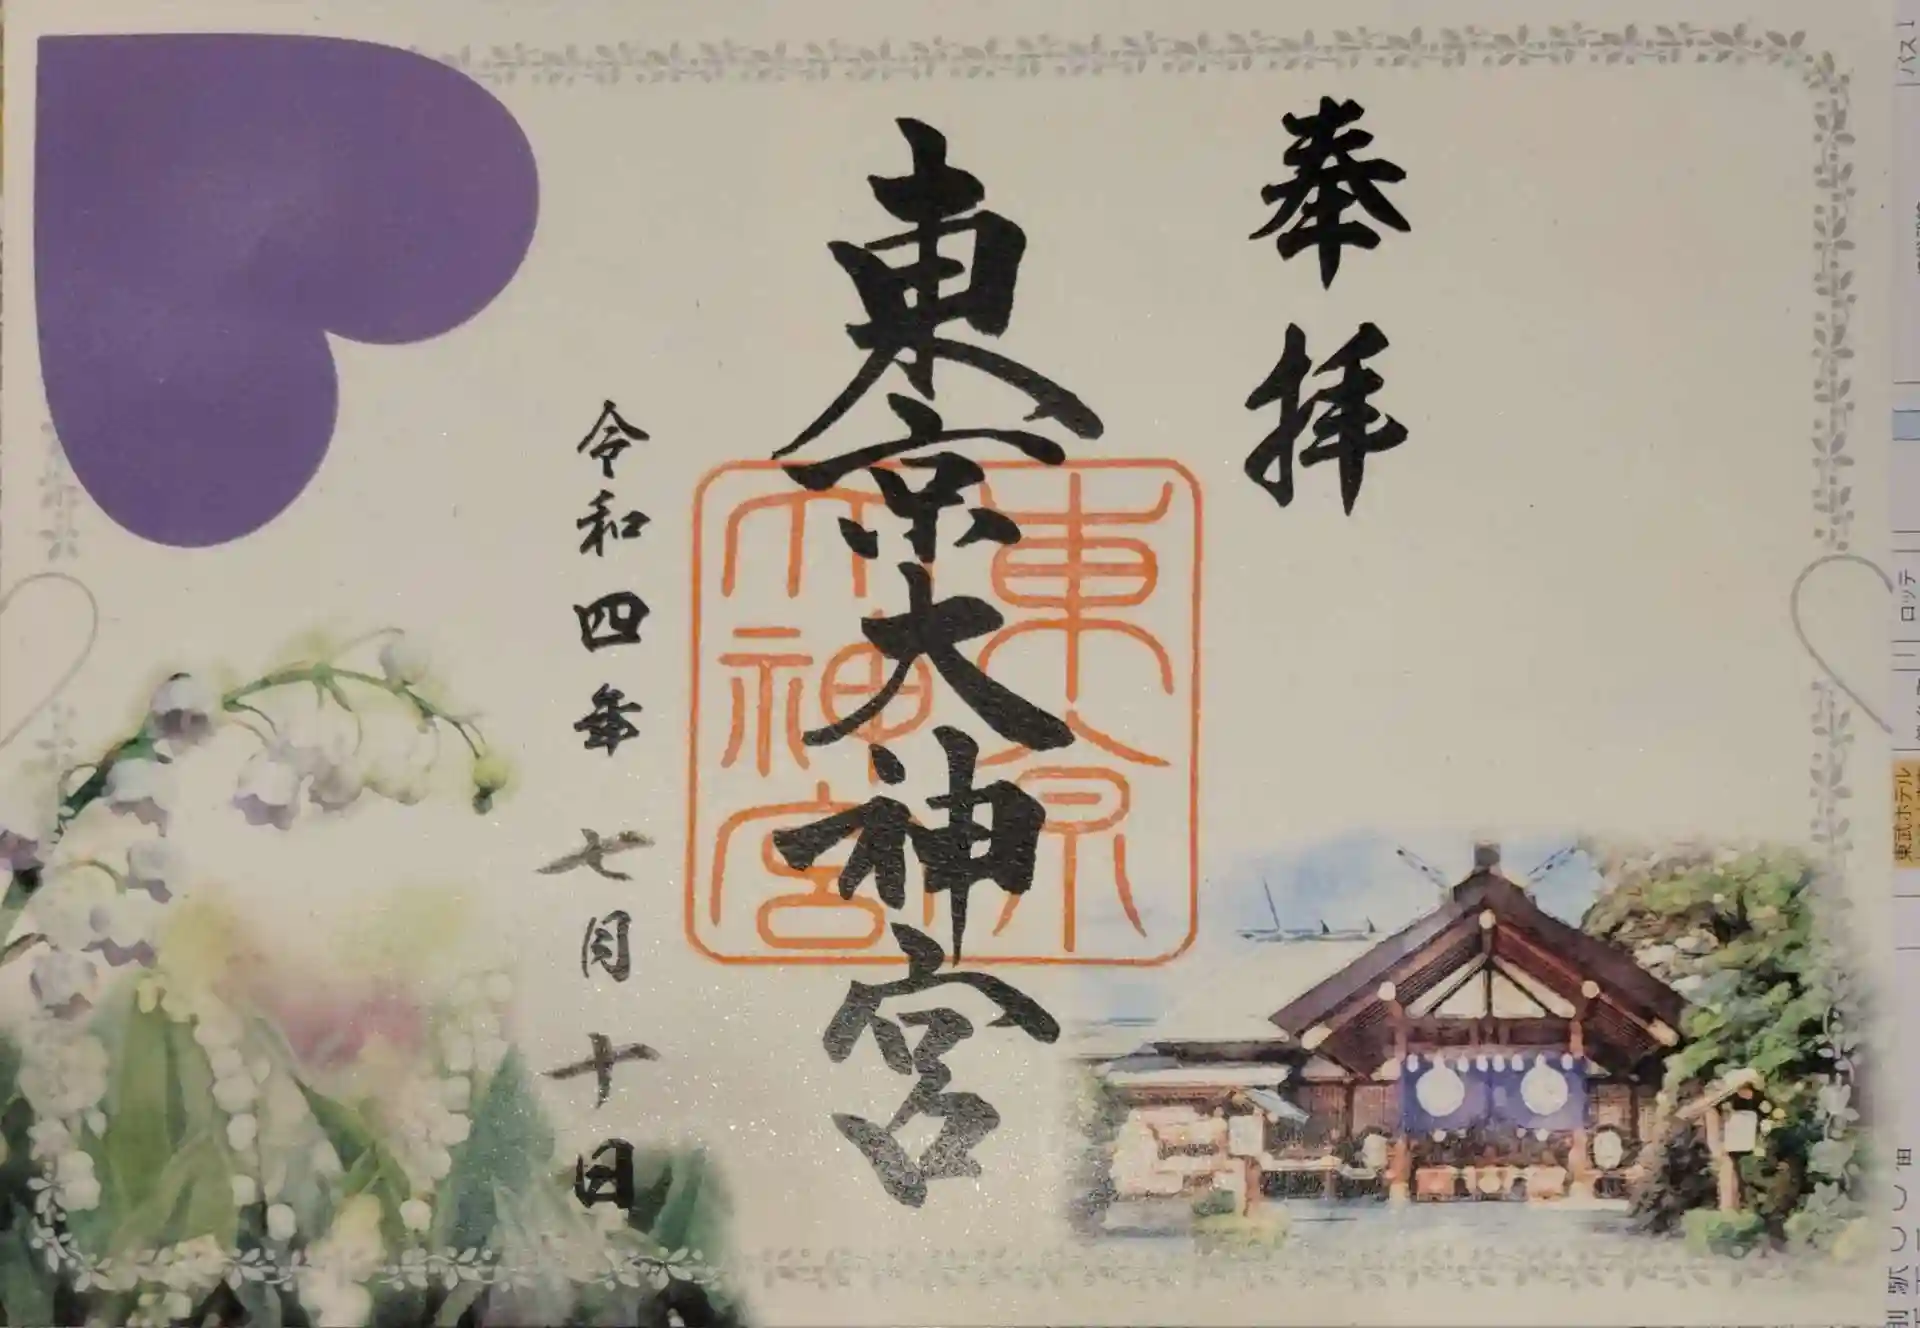 奉拝
東京大神宮
東京
大神宮
令和四年七月十日
バス1
ロッテ
東武ホテル